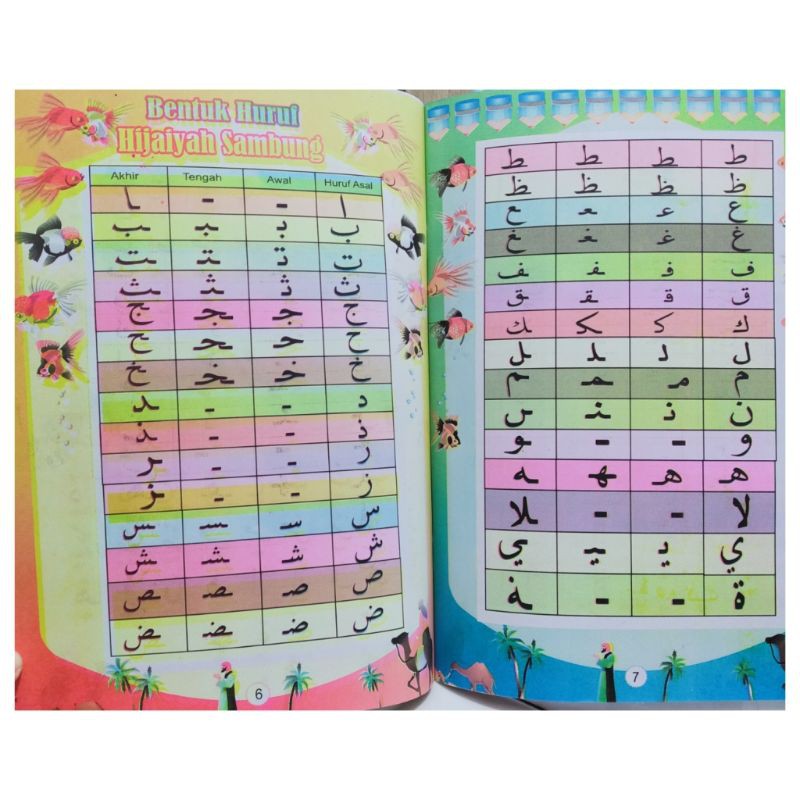 Bentuk Huruf
Hijaiyah Sambung
Akhir Tengah Awal Huruf Asal
ا - - ـا
ب بـ ـبـ ـب
ت تـ ـتـ ـت
ث ثـ ـثـ ـث
ج جـ ـجـ ـج
ح حـ ـحـ ـح
خ خـ ـخـ ـخ
د - - ـد
ذ - - ـذ
ر - - ـر
ز - - ـز
س سـ ـسـ ـس
ش شـ ـشـ ـش
ص صـ ـصـ ـص
ض ضـ ـضـ ـض
6
ط طـ ـطـ ـط
ظ ظـ ـظـ ـظ
ع عـ ـعـ ـع
غ غـ ـغـ ـغ
ف فـ ـفـ ـف
ق قـ ـقـ ـق
ك كـ ـكـ ـك
ل لـ ـلـ ـل
م مـ ـمـ ـم
ن نـ ـنـ ـن
و - - ـو
هـ هـ ـهـ ـه
لا - - ـلا
ي يـ ـيـ ـي
ة - - ـة
7